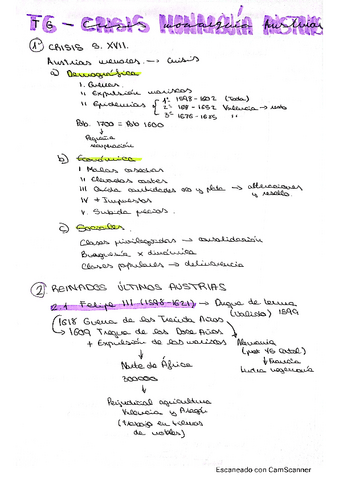 T6 - CRISIS MONARQUÍA AUSTRIAS
1º CRISIS S. XVII.
Austrias menores. → Crisis
a) Demográfica
I. Guerras
II Expulsión moriscos
III Epidemias 1º 1598-1602 (Toda)
2º 1652 Valencia → resto
3º 1676-1685 "
Pob. 1700 = Pob 1600
Pequeña
recuperación
b) Económica
I Malas cosechas
III Caída cantidades oro y plata → alteraciones
y resello.
IV + Impuestos
V. Subida precios.
c) Sociales
Clases privilegiadas → consolidación
Burguesía x dinámica
Clases populares → delincuencia
2 REINADOS ÚLTIMOS AUSTRIAS
2.1 Felipe III (1598-1621) → Duque de Lerma
(Valido) 1599
1618 Guerra de los Treinta Años
→ 1609 Tregua de los Doce Años
+ Expulsión de los moriscos
Alemania
Francia
Lucha hegemonía
Norte de África
300000
Perjudicial agricultura
Valencia y Aragón
(trabajo en tierras
de nobles)
Escaneado con CamScanner